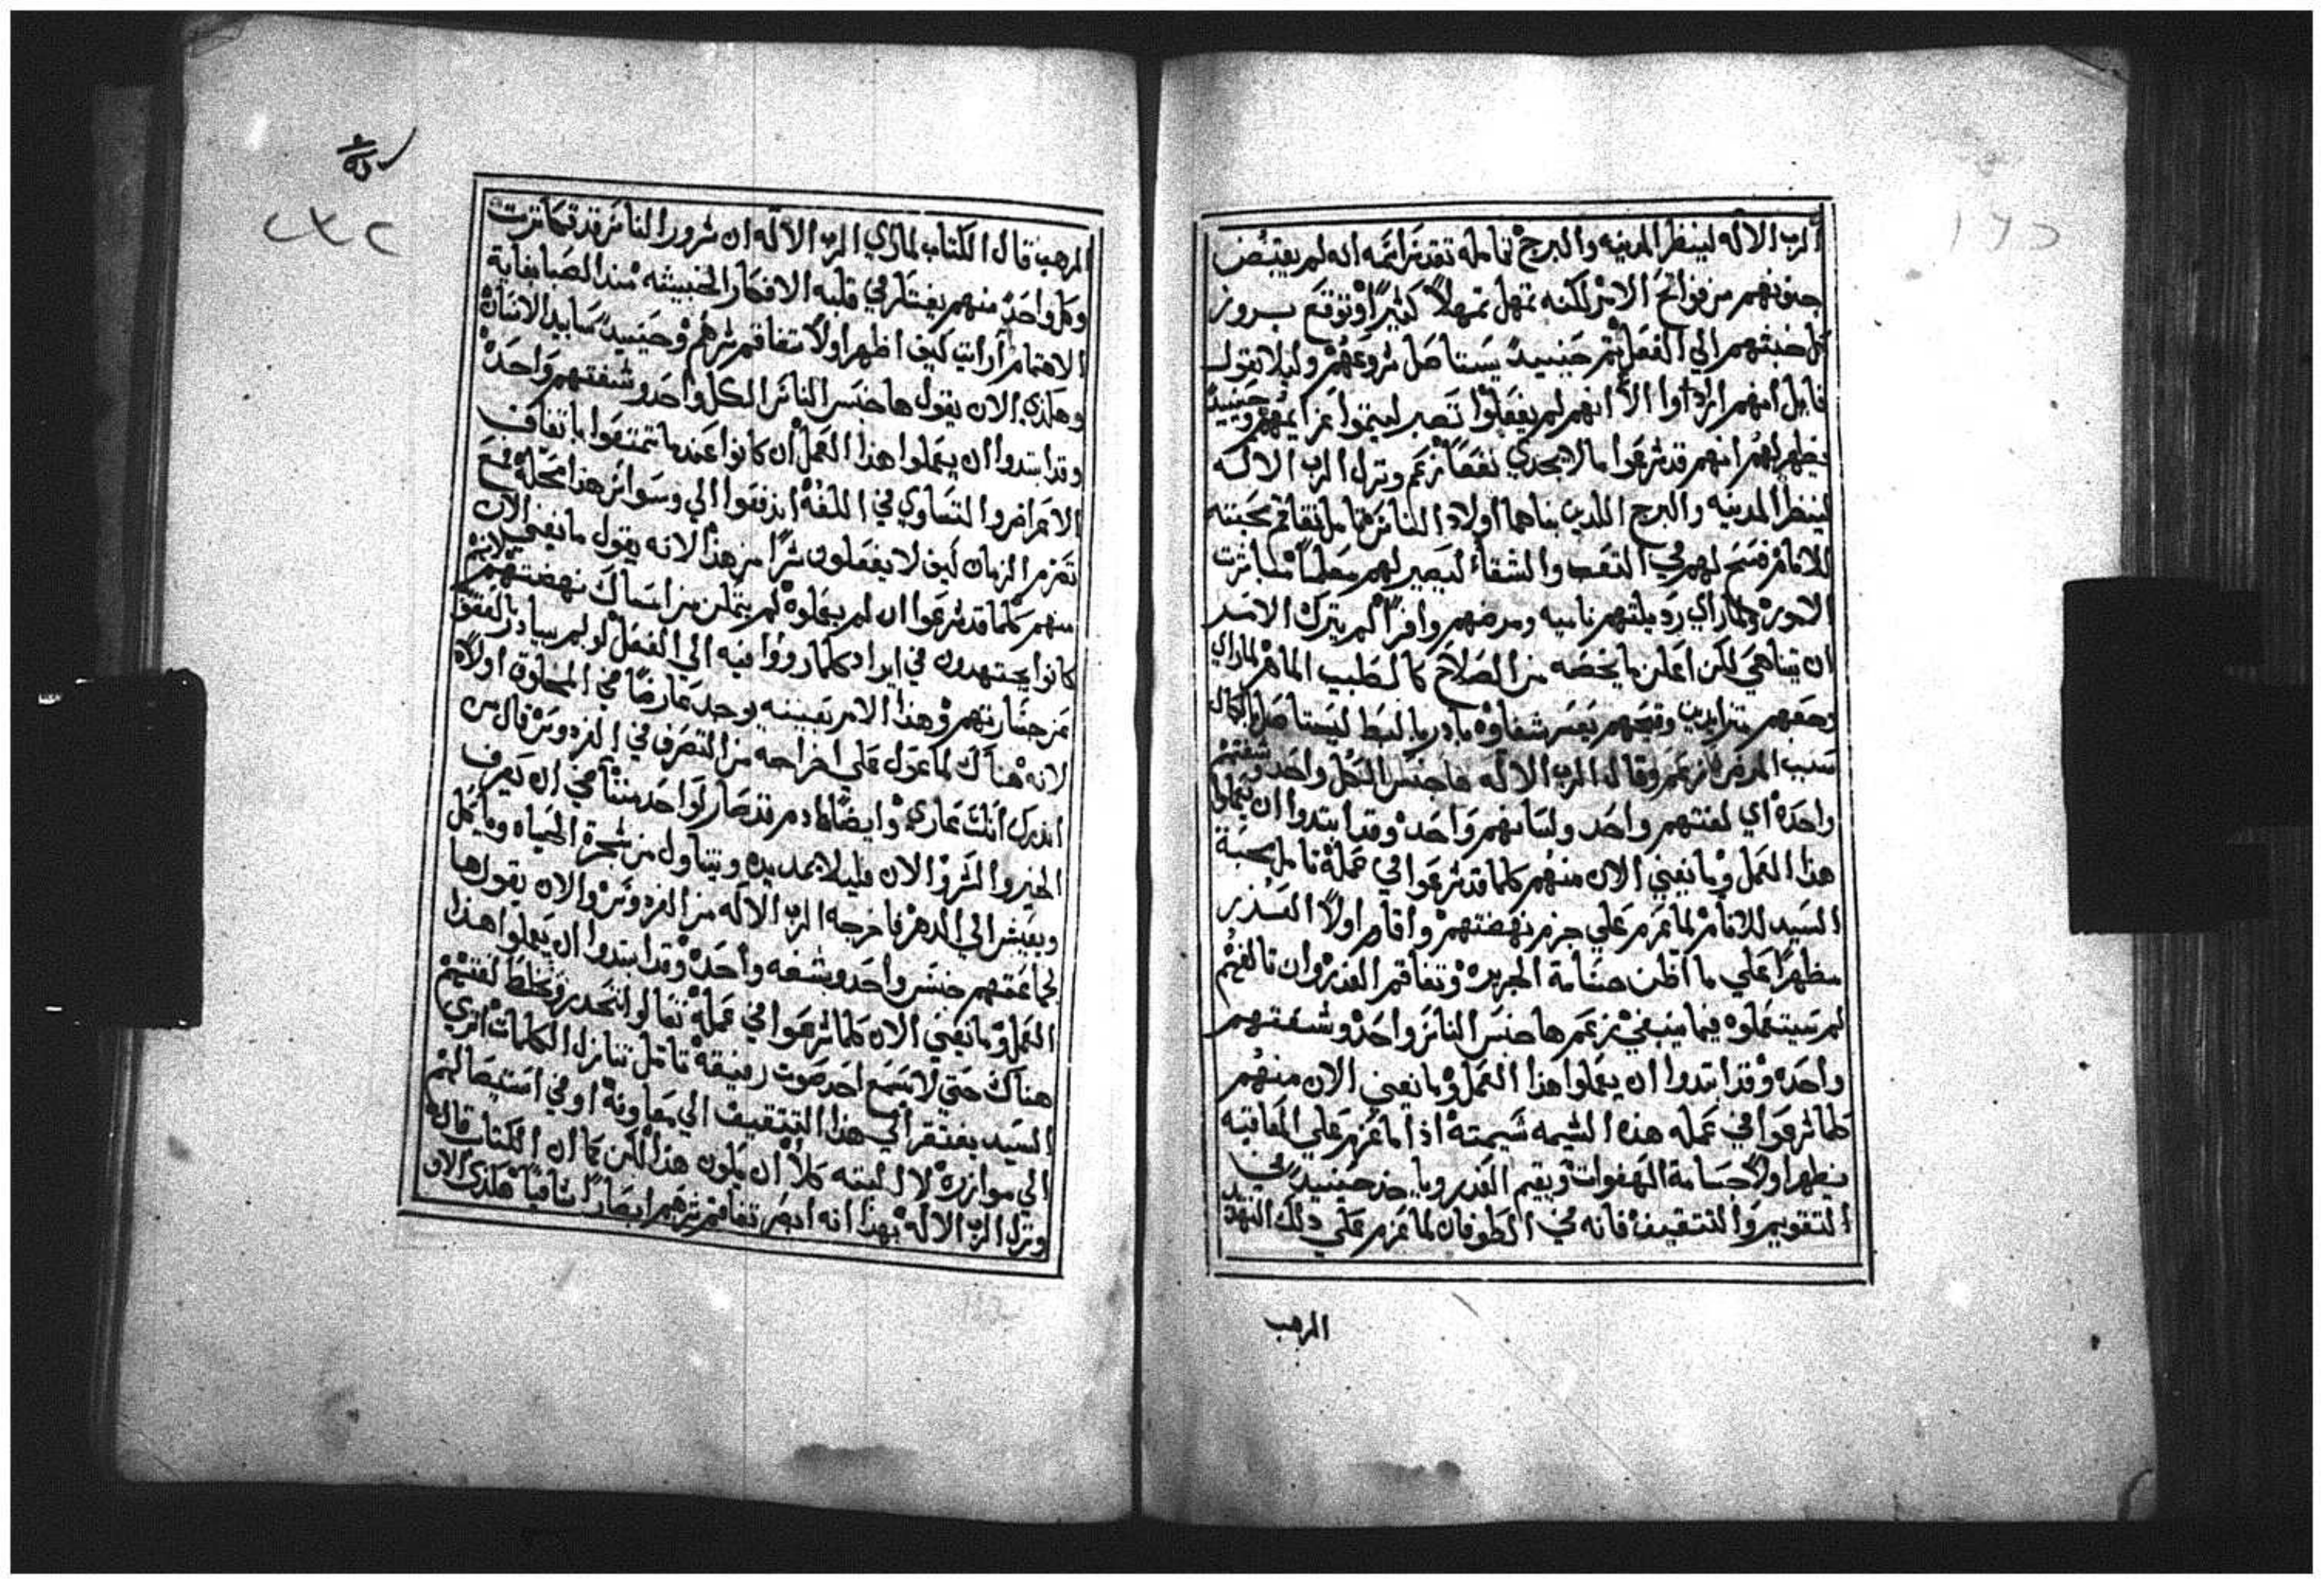 الرب الاله لينظر المدينه والبرج تامله تقدير ايمه انه لم يقتض
جنونهم من فواتح الامر لكنه تمهل تمهلاً كثيرًا وتوقع بروز
كل خبثهم الي الفعل ثم حينيدً يستاصل شروعهم وليلا يقول
قايل انهم ارتاوا الا انهم لم يفعلوا تصبر ليتموا عزايمهم وحينيدً
يظهر لهم انهم قد شرعوا بما لا يجدي نفعًا نزعم ونزل الرب الاله
لينظر المدينه والبرج اللدين بناهما اولاد الناس تامل تفاقم محبته
للانام فسح لهم في التعب والشقا ليصير لهم معلمًا مباشرت
الامور ولما راي رديلتهم ناميه ومرضهم وافرًا لم يترك الامر
ان يتناهي لكن اعلن ما يخصه من الصلاح كالطبيب الماهر لما راي
وجعهم متزايدين وقيحهم يعسر شفاوه بادر بالبط ليستاصل بالكمال
سبب المرض نزعم وقال الرب الاله ها جنس الكل واحد وشفتهم
واحده اي لغتهم واحد ولسانهم واحد وقد ابتدوا ان يعملوا
هذا العمل وما نعني الان منهم كلما قد شرعوا في عمله تامل محبة
السيد للانام لما عزم علي جزم نهضتهم واقام اولاً العذر
مظهرًا علي ما اظن جسامة الجريره وتفاقم الغدر وان تالفهم
لم يستعملوه فيما ينبغي نزعم ها جنس الناس واحد وشفتهم
واحده وقد ابتدوا ان يعملوا هذا العمل وما نعني الان منهم
كلما شرعوا في عمله هذه الشيمه شيمته اذا ما عزم علي المعاقبه
يظهر اولاً جسامة الهفوات ويقيم العذر وياخذ حينيدً في
التقويم والتثقيف فانه في الطوفان لما عزم علي ذلك التهديد
المرهب
المرهب قال الكتاب لما راي الرب الاله ان شرور الناس قد تكاثرت
وكل واحد منهم يفتكر في قلبه الافكار الخبيثه منذ الصبا بغاية
الاهتمام ارايت كيف اظهر اولاً تفاقم شرهم وحينيدً سابيد الانسان
وهكذي الان يقول ها جنس الناس الكل واحد وشفتهم واحده
وقد ابتدوا ان يعملوا هذا العمل ان كانوا عندما تمتعوا باتفاق
الاعراض والتساوي في اللغه اندفقوا الي وسواس هذا محله فمع
تصرم الزمان كيف لا يفعلون شرًا من هذا لانه يقول ما نعني الان
منهم كلما قد شرعوا ان لم يعملوه لم يتمكن من امساك نهضتهم لانهم
كانوا يجتهدون في ايراد كلما رووا فيه الي الفعل لو لم يبادر بالعقوبه
عن جسارتهم وهذا الامر بعينه يوجد عارضًا في المخلوق اولاً
لانه هناك لما عول علي اخراجه من التصرف في الفردوس قال من
انذرك انك عاري وايضًا ادم قد صار كواحد منا في ان يعرف
الخير والشر والان فليلا يمد يده ويتناول من شجرة الحياه وياكل
ويعيش الي الدهر فاخرجه الرب الاله من الفردوس والان يقول ها
لجماعتهم جنس واحد وشفه واحده وقد ابتدوا ان يعملوا هذا
العمل وما نعني الان كلما شرعوا في عمله تعالوا لنحدر ونخلط لغتهم
هناك حتي لا يسمع احد صوت رفيقه تامل تنازل الكلمات اتري
السيد يفتقر الي هذا التثقيف الي معاونه او في استيصالهم
الي موازره لا البته كلا ان يكون هذا لكن كما ان الكتاب قال
ونزل الرب الاله بهذا انه ابصر تفاقم شرهم ابصارًا شافيًا هكذي الان